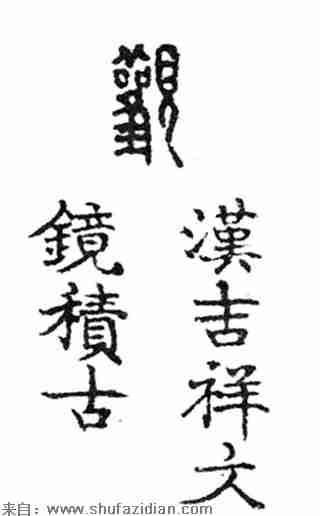 觀
漢吉祥文
鏡積古
来自：www.shufazidian.com